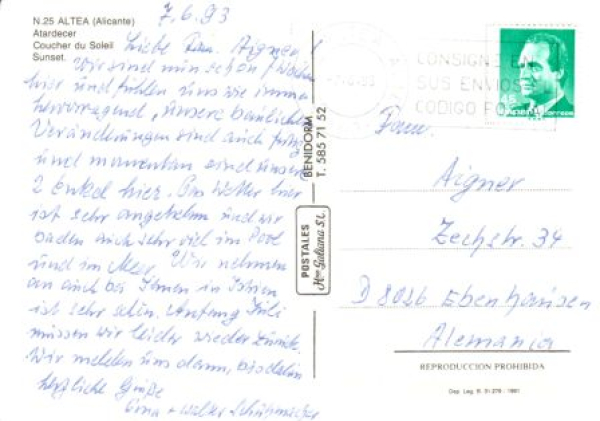 N.25 ALTEA (Alicante)
Atardecer
Coucher du Soleil
Sunset.
7.6.93
Liebe Fam. Aigner!
Wir sind nun schon
hier und fühlen uns wie immer
hervorragend, Unsere baulichen
Veränderungen sind auch fertig
und momentan sind unsere
2 Enkel hier. Das Wetter hier
ist sehr angenehm und wir
baden auch sehr viel im Pool
und im Meer. Wir nehmen
an auch bei Ihnen in
ist sehr schön. Anfang Juli
müssen wir leider wieder zurück.
Wir melden uns dann, bis dahin
herzliche Grüße
+ Walter Schuhmacher
BENIDORM
T. 585 71 52
POSTALES
Hnos Galiana S.L.
CONSIGNE EN
SUS ENVIOS
CODIGO POSTAL
correos
Fam.
Aigner
Zechstr. 34
D 8026 Ebenhausen
Alemania
REPRODUCCION PROHIBIDA
Dep. Leg. B. 31.276 - 1991